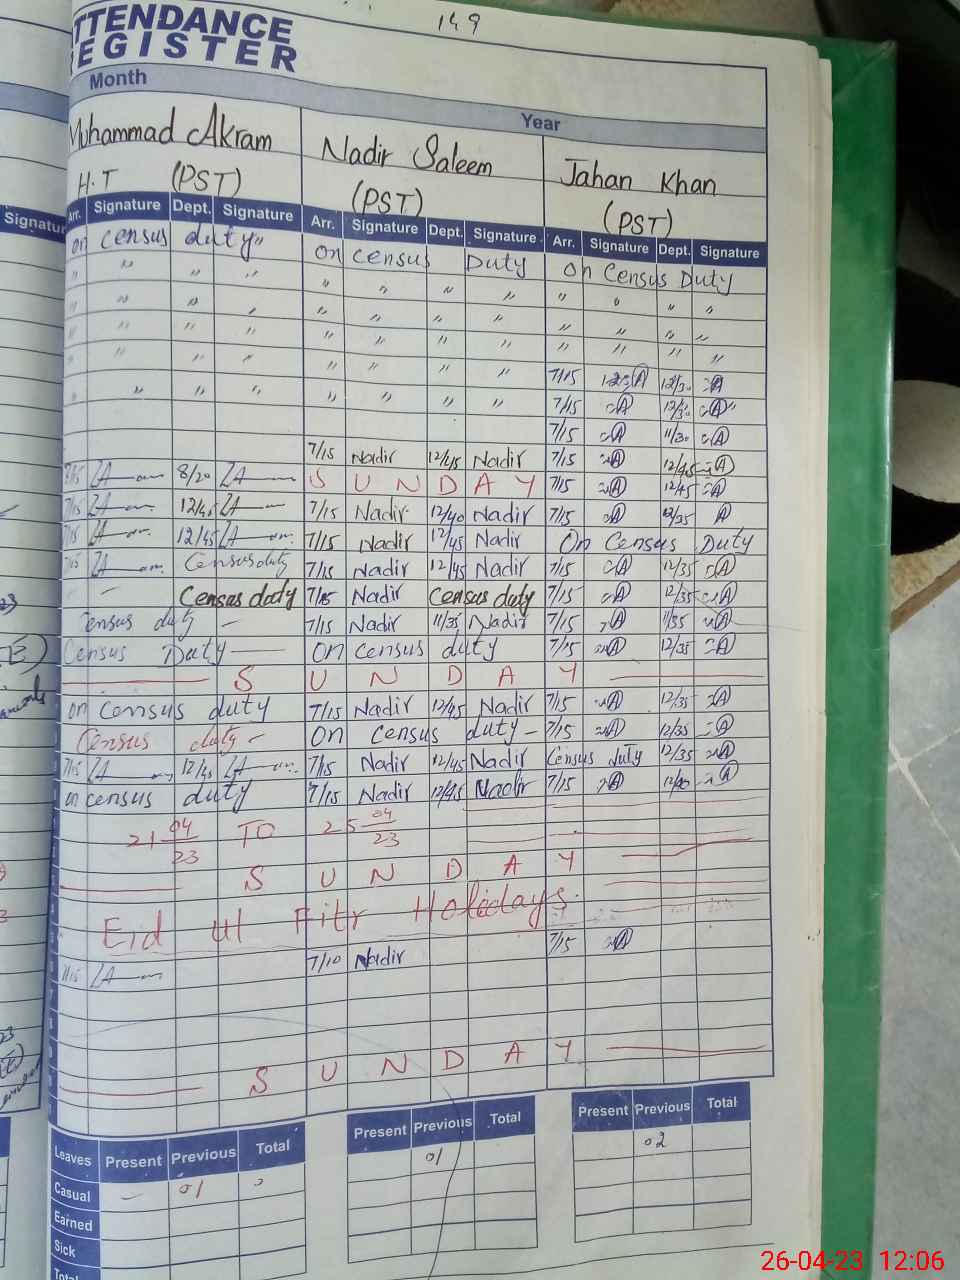 149
ATTENDANCE
REGISTER
Month
Year
Muhammad Akram Nadir Saleem Jahan Khan
H.T (PST) (PST) (PST)
Signature Arr. Signature Dept. Signature Arr. Signature Dept. Signature Arr. Signature Dept. Signature
on census duty" on census Duty on Census Duty
" " " " " " " " " " "
" " " " " " " " " " "
" " " " " " " " " " "
" " " " " " " " 7/15 12/30
" " " " " " " 7/15 12/30
7/15 11/30
7/15 Nadir 12/45 Nadir 7/15 12/45
7/15 8/20 S U N D A Y 7/15 12/45
7/15 12/45 7/15 Nadir 12/40 Nadir 7/15 12/35
7/15 12/45 7/15 Nadir 12/45 Nadir On Census Duty
7/15 Census duty 7/15 Nadir 12/45 Nadir 7/15 12/35
Census duty 7/15 Nadir Census duty 7/15 12/35
Census duty - 7/15 Nadir 11/35 Nadir 7/15 11/35
Census Duty on census duty 7/15 12/35
S U N D A Y
on census duty 7/15 Nadir 12/45 Nadir 7/15 12/35
Census duty - on census duty - 7/15 12/35
7/15 12/45 7/15 Nadir 12/45 Nadir Census duty 12/35
on census duty 7/15 Nadir 12/45 Nadir 7/15
21 04/23 TO 25 04/23
S U N D A Y
Eid ul Fitr Holidays.
7/15
7/15 7/10 Nadir
S U N D A Y
Leaves Present Previous Total Present Previous Total Present Previous Total
Casual - 01 01 02
Earned
Sick
26-04-23 12:06